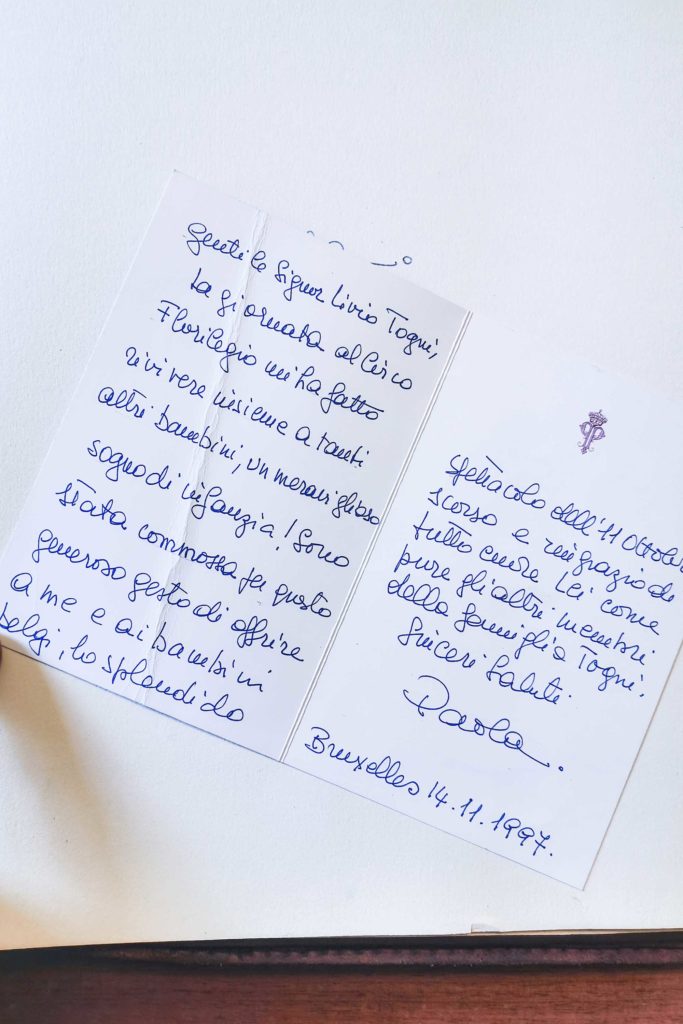 Gentile Signor Livio Togni,
La giornata al Circo
Florilegio mi ha fatto
rivivere insieme a tanti
altri bambini, un meraviglioso
sogno di infanzia! Sono
stata commossa per questo
generoso gesto di offrire
a me e ai bambini
belgi, lo splendido
spettacolo dell'11 Ottobre
scorso e ringrazio di
tutto cuore Lei come
pure gli altri membri
della famiglia Togni.
Sinceri Saluti.
Paola.
Bruxelles 14.11.1997.